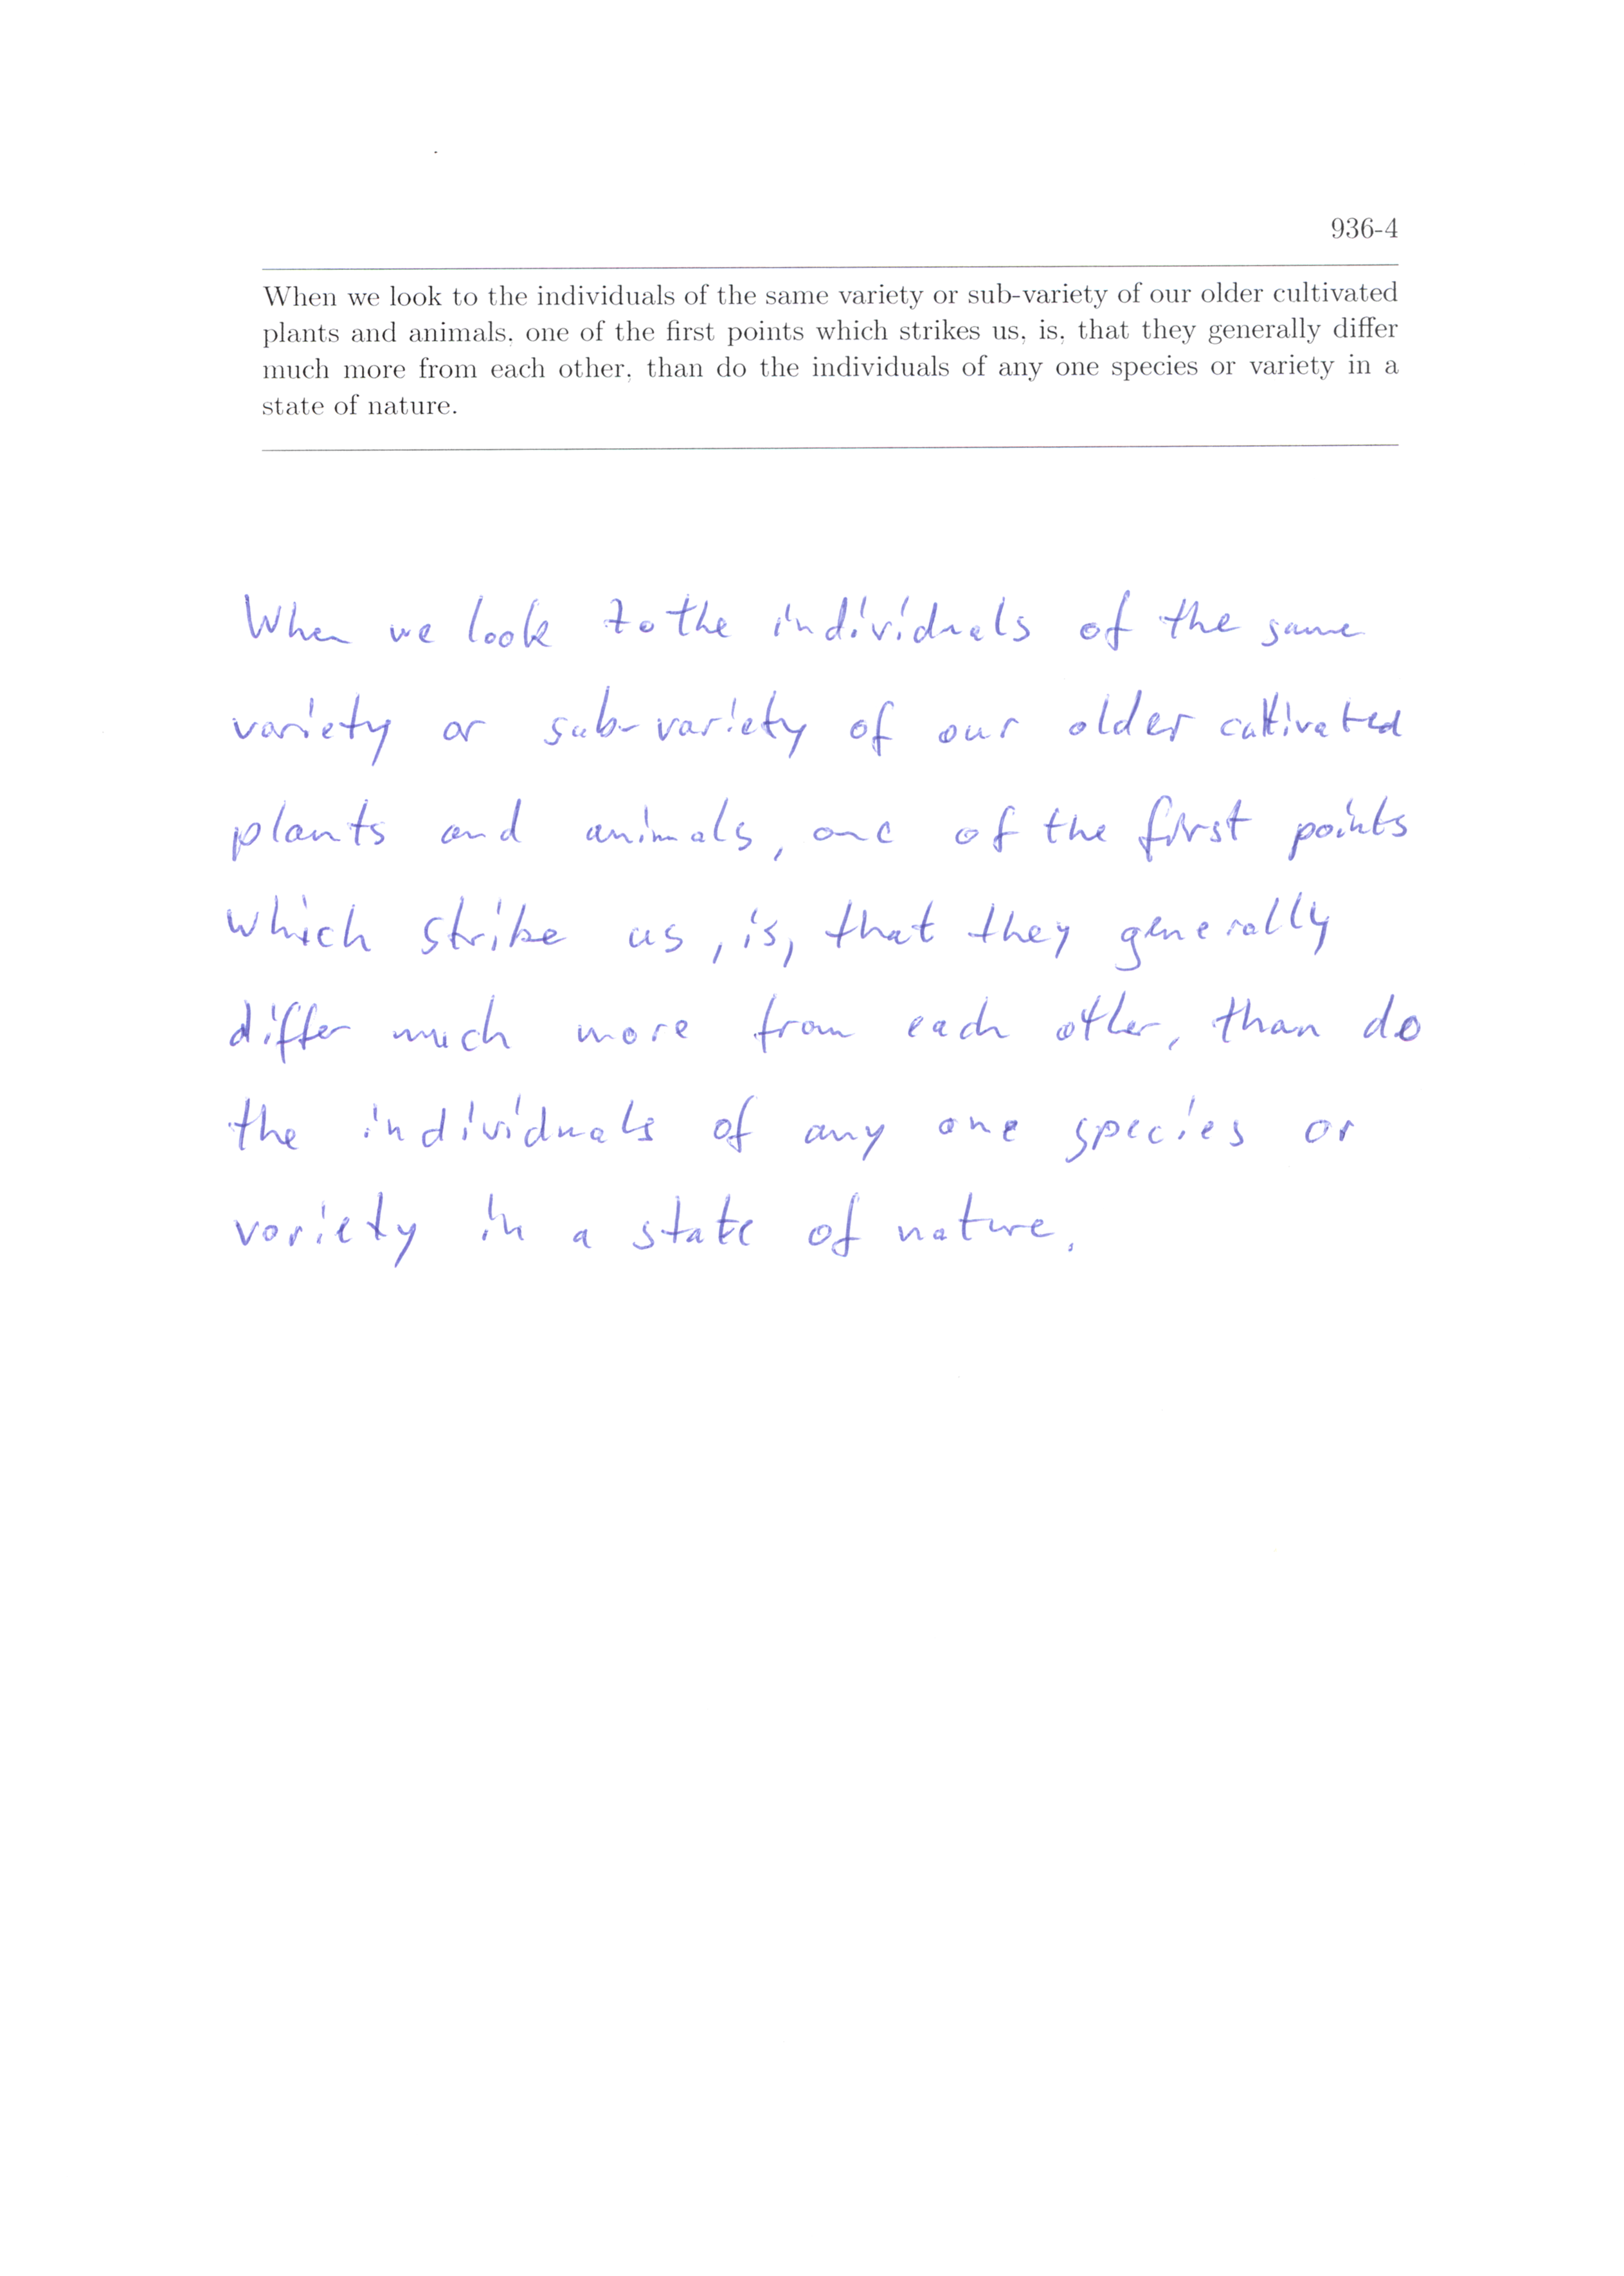 936-4
When we look to the individuals of the same variety or sub-variety of our older cultivated
plants and animals, one of the first points which strikes us, is, that they generally differ
much more from each other, than do the individuals of any one species or variety in a
state of nature.
When we look to the individuals of the same
variety or sub-variety of our older cultivated
plants and animals, one of the first points
which strike us, is, that they generally
differ much more from each other, than do
the individuals of any one species or
variety in a state of nature.